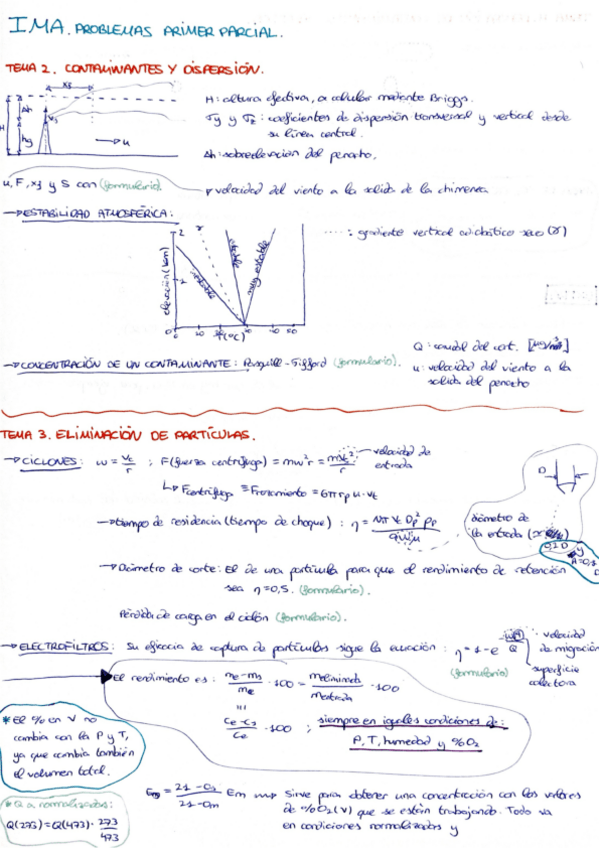 IMA. PROBLEMAS PRIMER PARCIAL.
TEMA 2. CONTAMINANTES Y DISPERSIÓN.
xf
Δh
H
hg
vs
u
H: altura efectiva, a calcular mediante Briggs.
σy y σz: coeficientes de dispersión transversal y vertical desde
su línea central.
Δh: sobreelevación del penacho.
u, F, xf y S con (formulario).
velocidad del viento a la salida de la chimenea
→ ESTABILIDAD ATMOSFÉRICA:
elevación (km)
2
γ
inestable
estable
muy estable
T(ºC)
0
10
40
50
.....: gradiente vertical adiabático seco (γ)
→ CONCENTRACIÓN DE UN CONTAMINANTE: Pasquill-Gifford (formulario).
Q: caudal del cont.
u: velocidad del viento a la
salida del penacho
TEMA 3. ELIMINACIÓN DE PARTÍCULAS.
→ CICLONES: w = vt/r ; F (fuerza centrífuga) = mw²r = mvt²/r → velocidad de
entrada
↳ Fcentrífuga ≡ Frozamiento = 6πrpμ·vt
→ tiempo de residencia (tiempo de choque): η =
D
diámetro de
la entrada
→ Diámetro de corte: El de una partícula para que el rendimiento de retención
sea η = 0,5. (formulario).
Pérdida de carga en el ciclón (formulario).
→ ELECTROFILTROS: Su eficacia de captura de partículas sigue la ecuación: η = 1 - e
velocidad
de migración
(formulario)
superficie
colectora
El rendimiento es: (me - ms)/me · 100 = meliminada/mentrada · 100
(ce - cs)/ce · 100 ; siempre en iguales condiciones de:
P, T, humedad y %O2
* El % en V no
cambia con la P y T,
ya que cambia también
el volumen total.
* Q a normalizados:
Q(273) = Q(473) · 273/473
= (21 - O2)/(21 - Om) Em → Sirve para obtener una concentración con los valores
de %O2 (V) que se están trabajando. Todo va
en condiciones normalizadas y